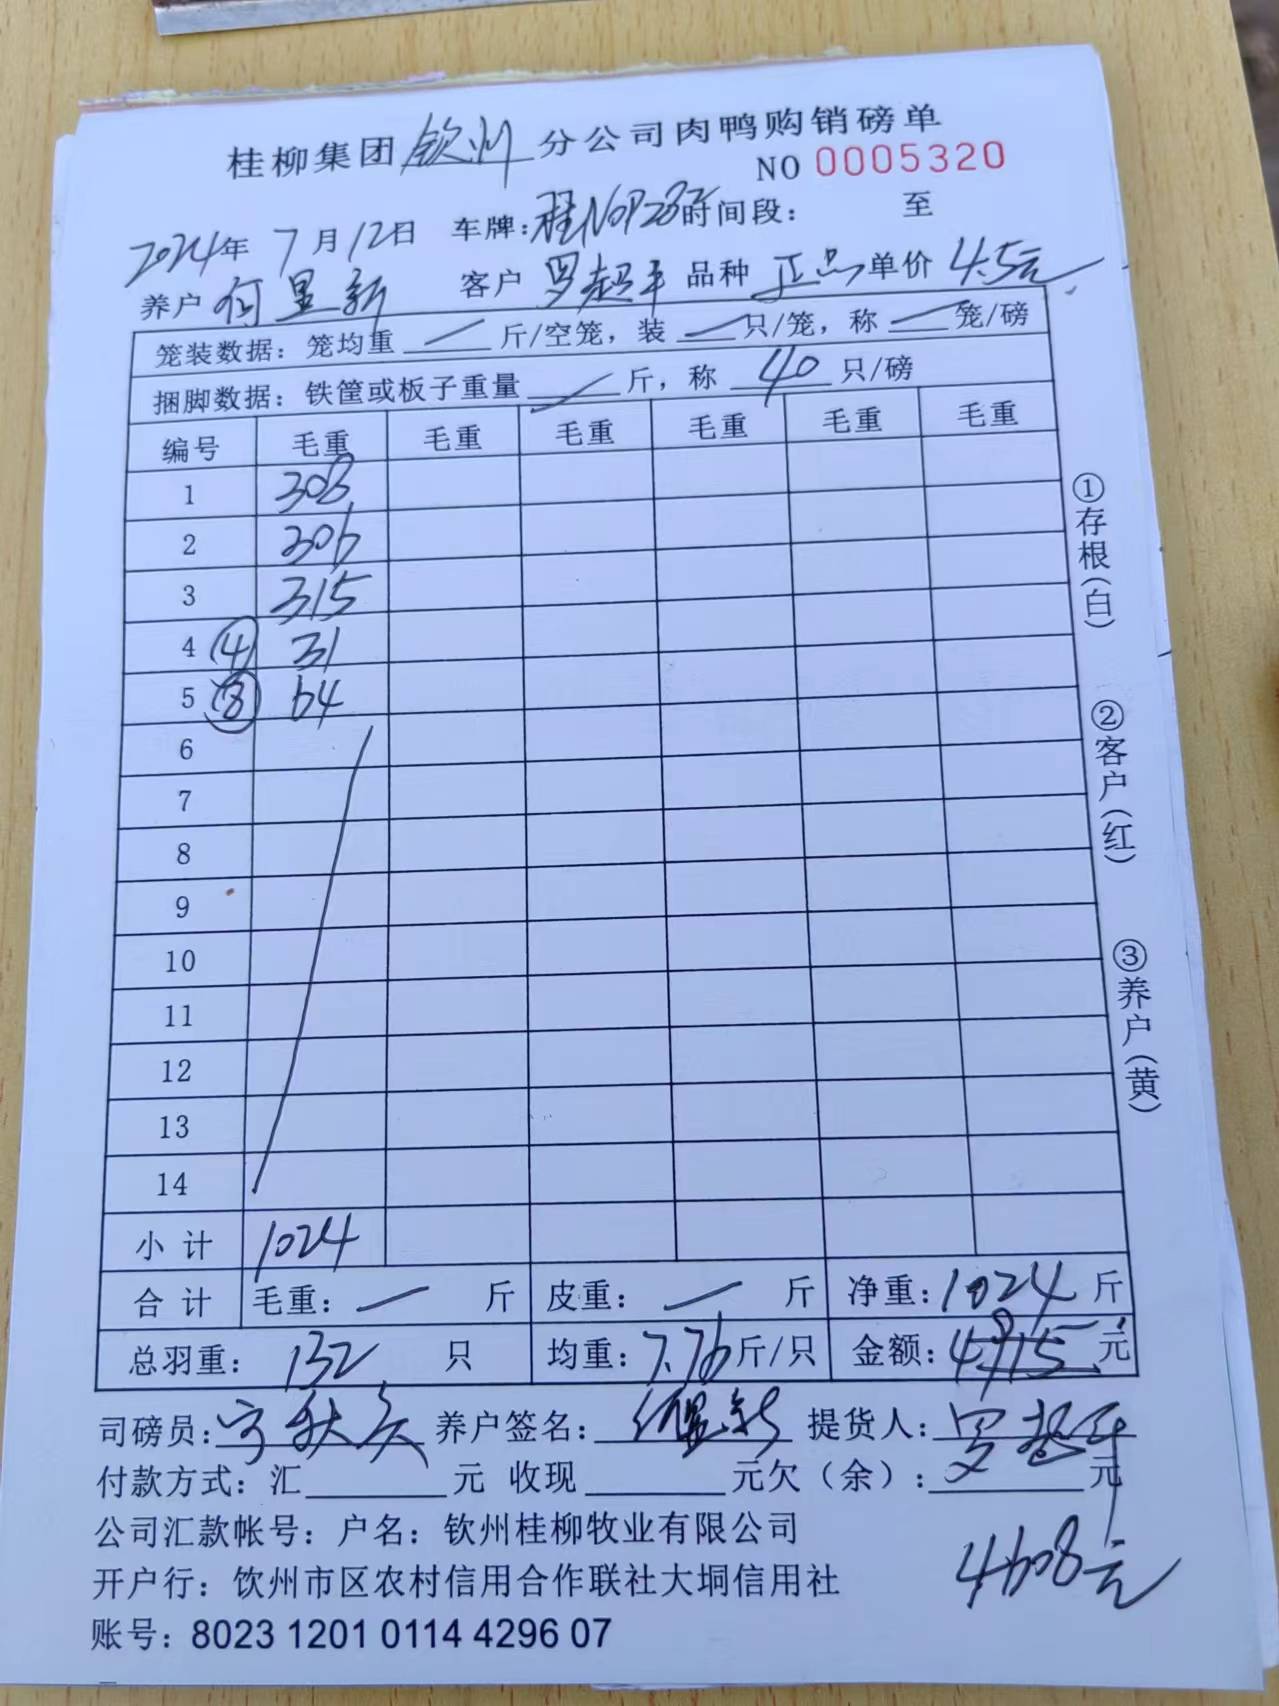 桂柳集团钦州分公司肉鸭购销磅单
NO 0005320
2024年7月12日 车牌:桂N0P287 时间段: 至
养户 何显新 客户 罗超平 品种 正品 单价 4.5元
笼装数据:笼均重 一 斤/空笼,装 一 只/笼,称 一 笼/磅
捆脚数据:铁筐或板子重量 一 斤,称 40 只/磅
编号 毛重 毛重 毛重 毛重 毛重 毛重
1 308
2 306
3 315
4 ④ 31
5 ⑧ 64
6
7
8
9
10
11
12
13
14
小计 1024
合计 毛重: 一 斤 皮重: 一 斤 净重:1024 斤
总羽重: 132 只 均重:7.76斤/只 金额: 元
司磅员: 养户签名:何显新 提货人:罗超平
付款方式:汇 元 收现 元欠(余): 元
4608元
公司汇款帐号:户名:钦州桂柳牧业有限公司
开户行:饮州市区农村信用合作联社大垌信用社
账号:8023 1201 0114 4296 07
①存根(白)
②客户(红)
③养户(黄)